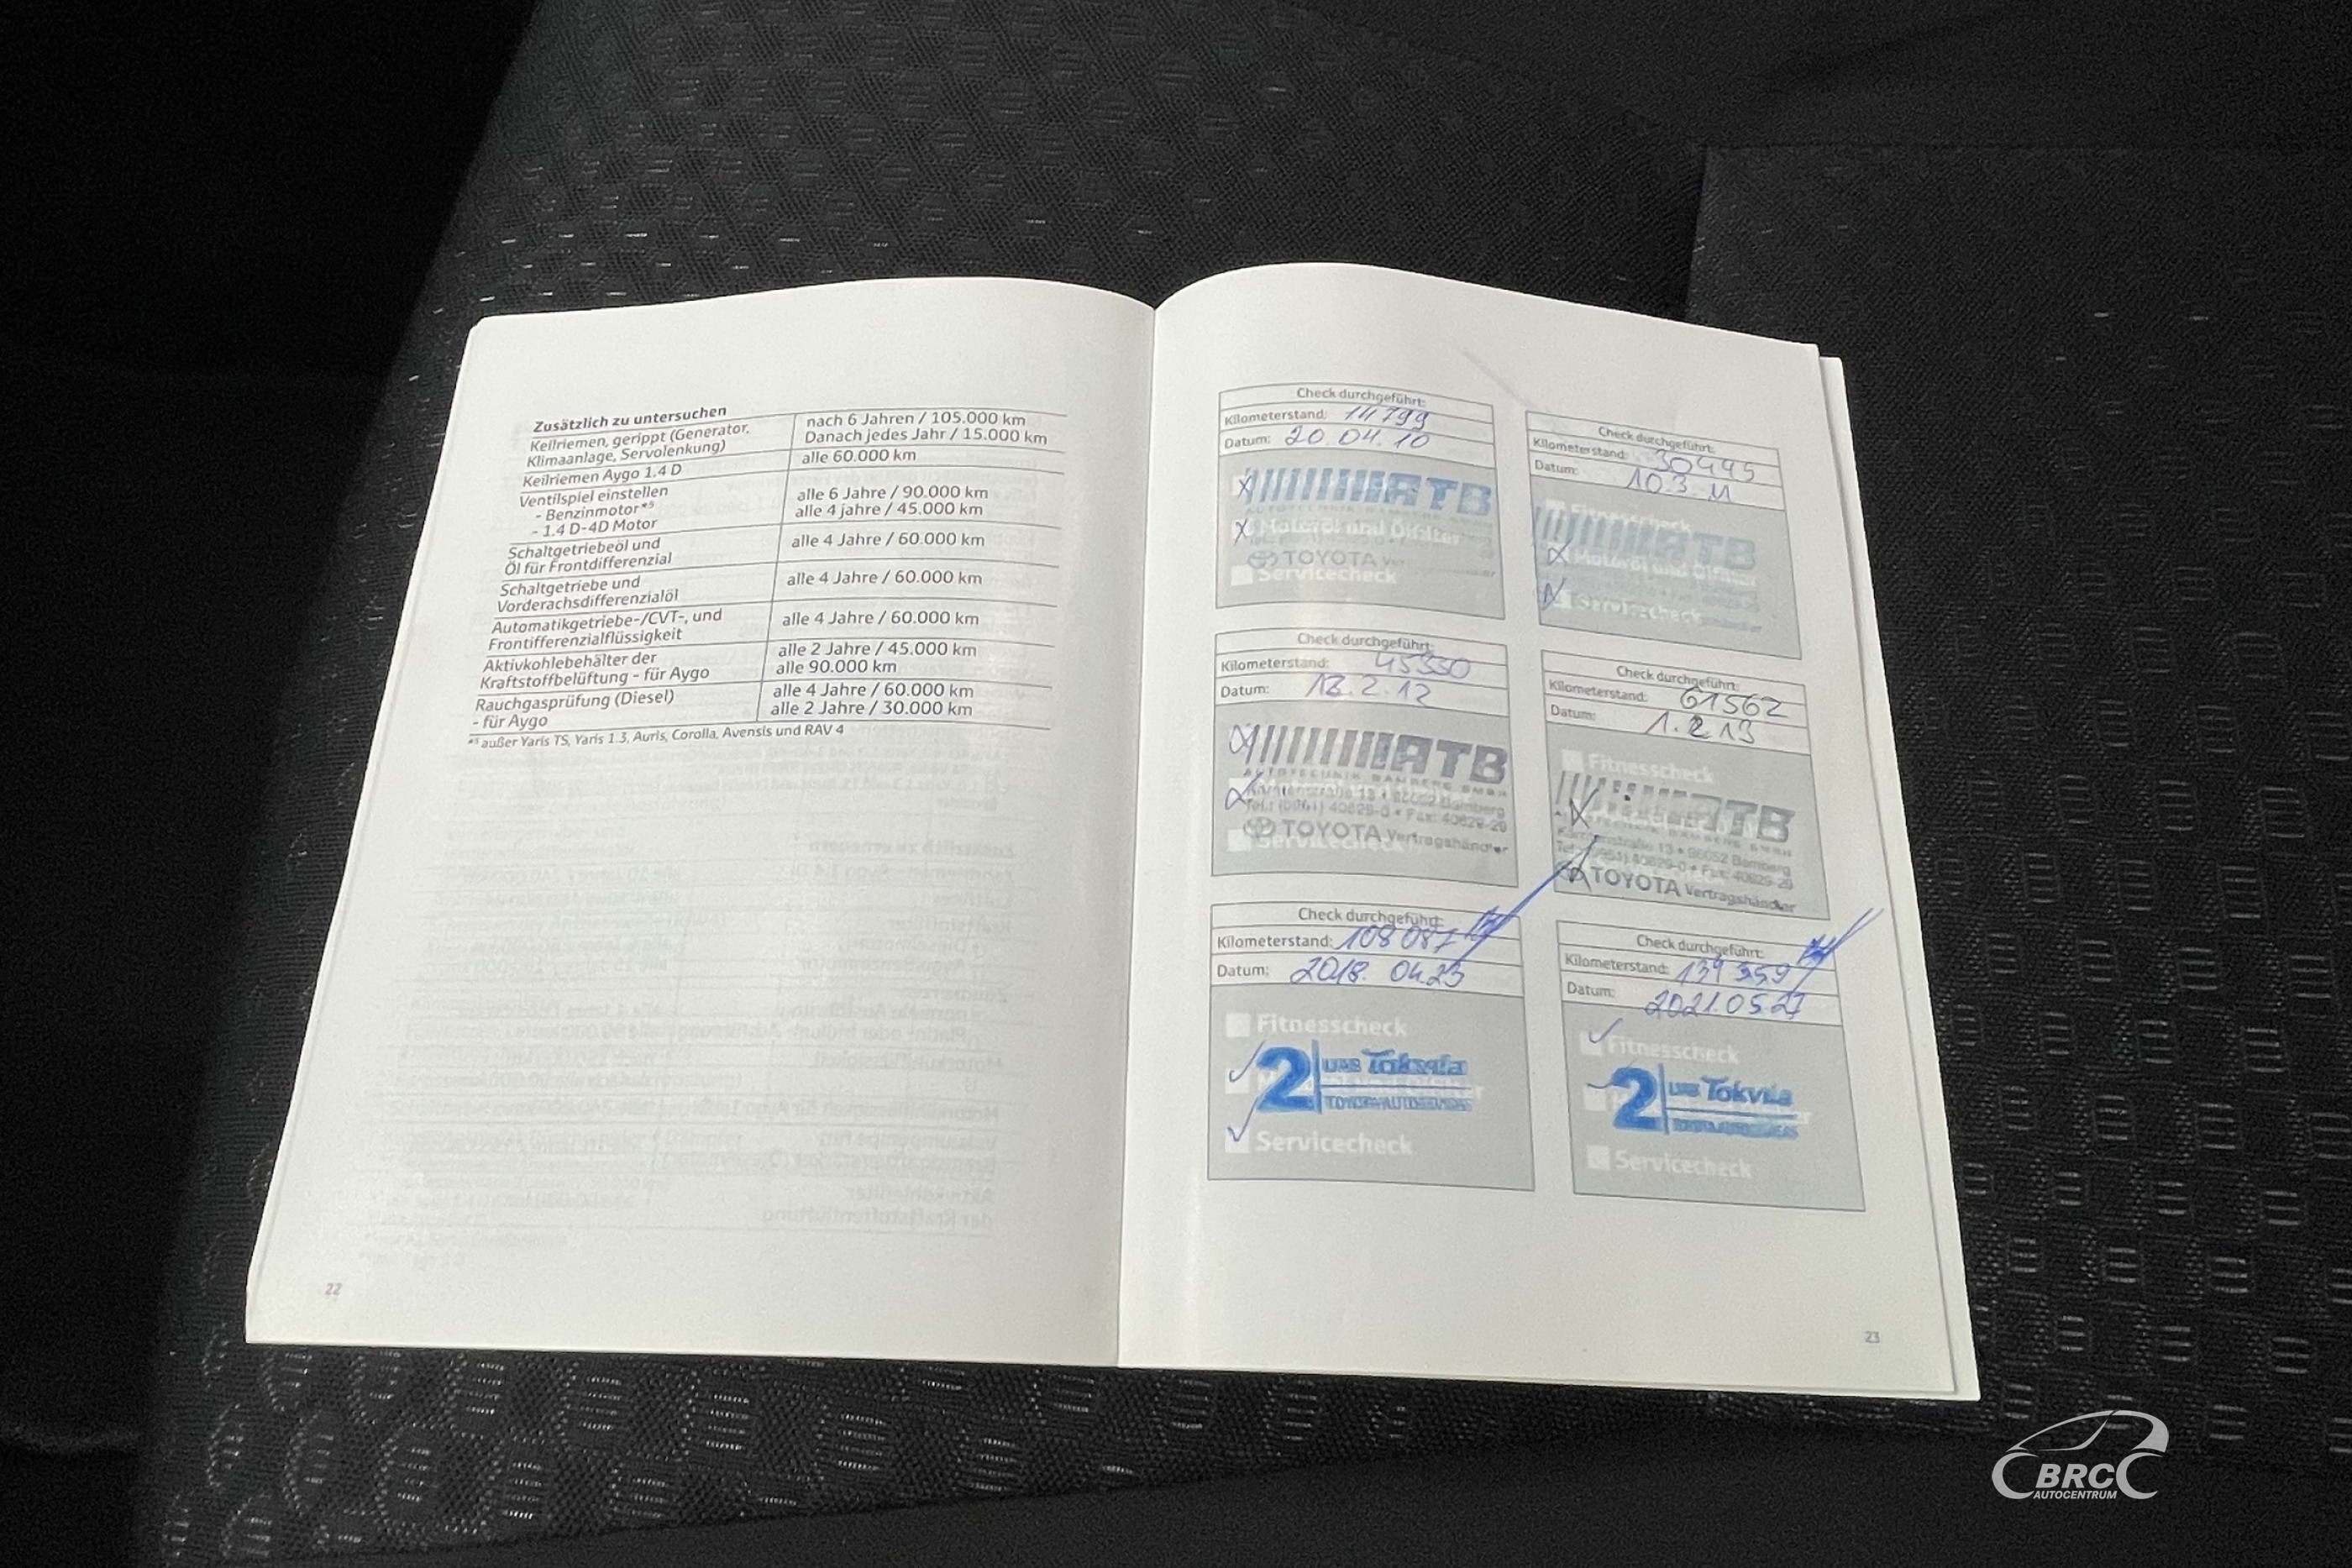 Zusätzlich zu untersuchen
Keilriemen, gerippt (Generator, Klimaanlage, Servolenkung)
nach 6 Jahren / 105.000 km
Danach jedes Jahr / 15.000 km
Keilriemen Aygo 1.4 D
alle 60.000 km
Ventilspiel einstellen
- Benzinmotor*⁵
alle 6 Jahre / 90.000 km
- 1.4 D-4D Motor
alle 4 jahre / 45.000 km
Schaltgetriebeöl und
Öl für Frontdifferenzial
alle 4 Jahre / 60.000 km
Schaltgetriebe und
Vorderachsdifferenzialöl
alle 4 Jahre / 60.000 km
Automatikgetriebe-/CVT-, und
Frontifferenzialflüssigkeit
alle 4 Jahre / 60.000 km
Aktivkohlebehälter der
Kraftstoffbelüftung - für Aygo
alle 2 Jahre / 45.000 km
alle 90.000 km
Rauchgasprüfung (Diesel)
- für Aygo
alle 4 Jahre / 60.000 km
alle 2 Jahre / 30.000 km
*⁵ außer Yaris TS, Yaris 1.3, Auris, Corolla, Avensis und RAV 4
22
Check durchgeführt:
Kilometerstand: 14799
Datum: 20.04.10
ATB
Motoröl und Ölfilter
TOYOTA
Servicecheck
Check durchgeführt:
Kilometerstand: 30445
Datum: 10.3.11
Fitnesscheck
ATB
Motoröl und Ölfilter
Servicecheck
Check durchgeführt:
Kilometerstand: 45350
Datum: 13.2.12
ATB
AUTOTECHNIK BAMBERG GMBH
Kärntenstraße 13 • 96052 Bamberg
Tel.: (0951) 40629-0 • Fax: 40629-29
TOYOTA Vertragshändler
Servicecheck
Check durchgeführt:
Kilometerstand: 61562
Datum: 1.2.13
Fitnesscheck
ATB
AUTOTECHNIK BAMBERG GMBH
Kärntenstraße 13 • 96052 Bamberg
Tel.: (0951) 40629-0 • Fax: 40629-29
TOYOTA Vertragshändler
Check durchgeführt:
Kilometerstand: 108 087
Datum: 2018. 04.23
Fitnesscheck
2 UAB Tokvila
Servicecheck
Check durchgeführt:
Kilometerstand: 139 959
Datum: 2021.05.27
Fitnesscheck
2 UAB Tokvila
Servicecheck
23
BRC
AUTOCENTRUM